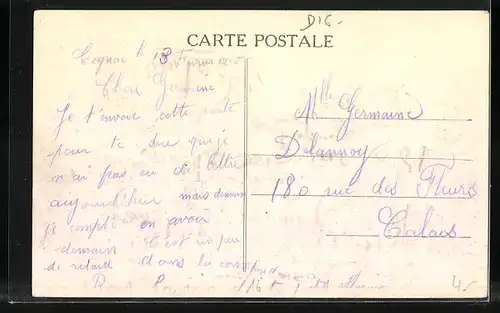 D16-
CARTE POSTALE
Cognac le 13 Février
Chère Germaine
Je t'envoie cette carte
pour te dire que je
n'ai pas eu de lettre
aujourd'hui mais demain
je compte en avoir
demain C'est un peu
de retard dans la correspondance
Melle Germaine
Delannoy
180 rue des Fleurs
Calais